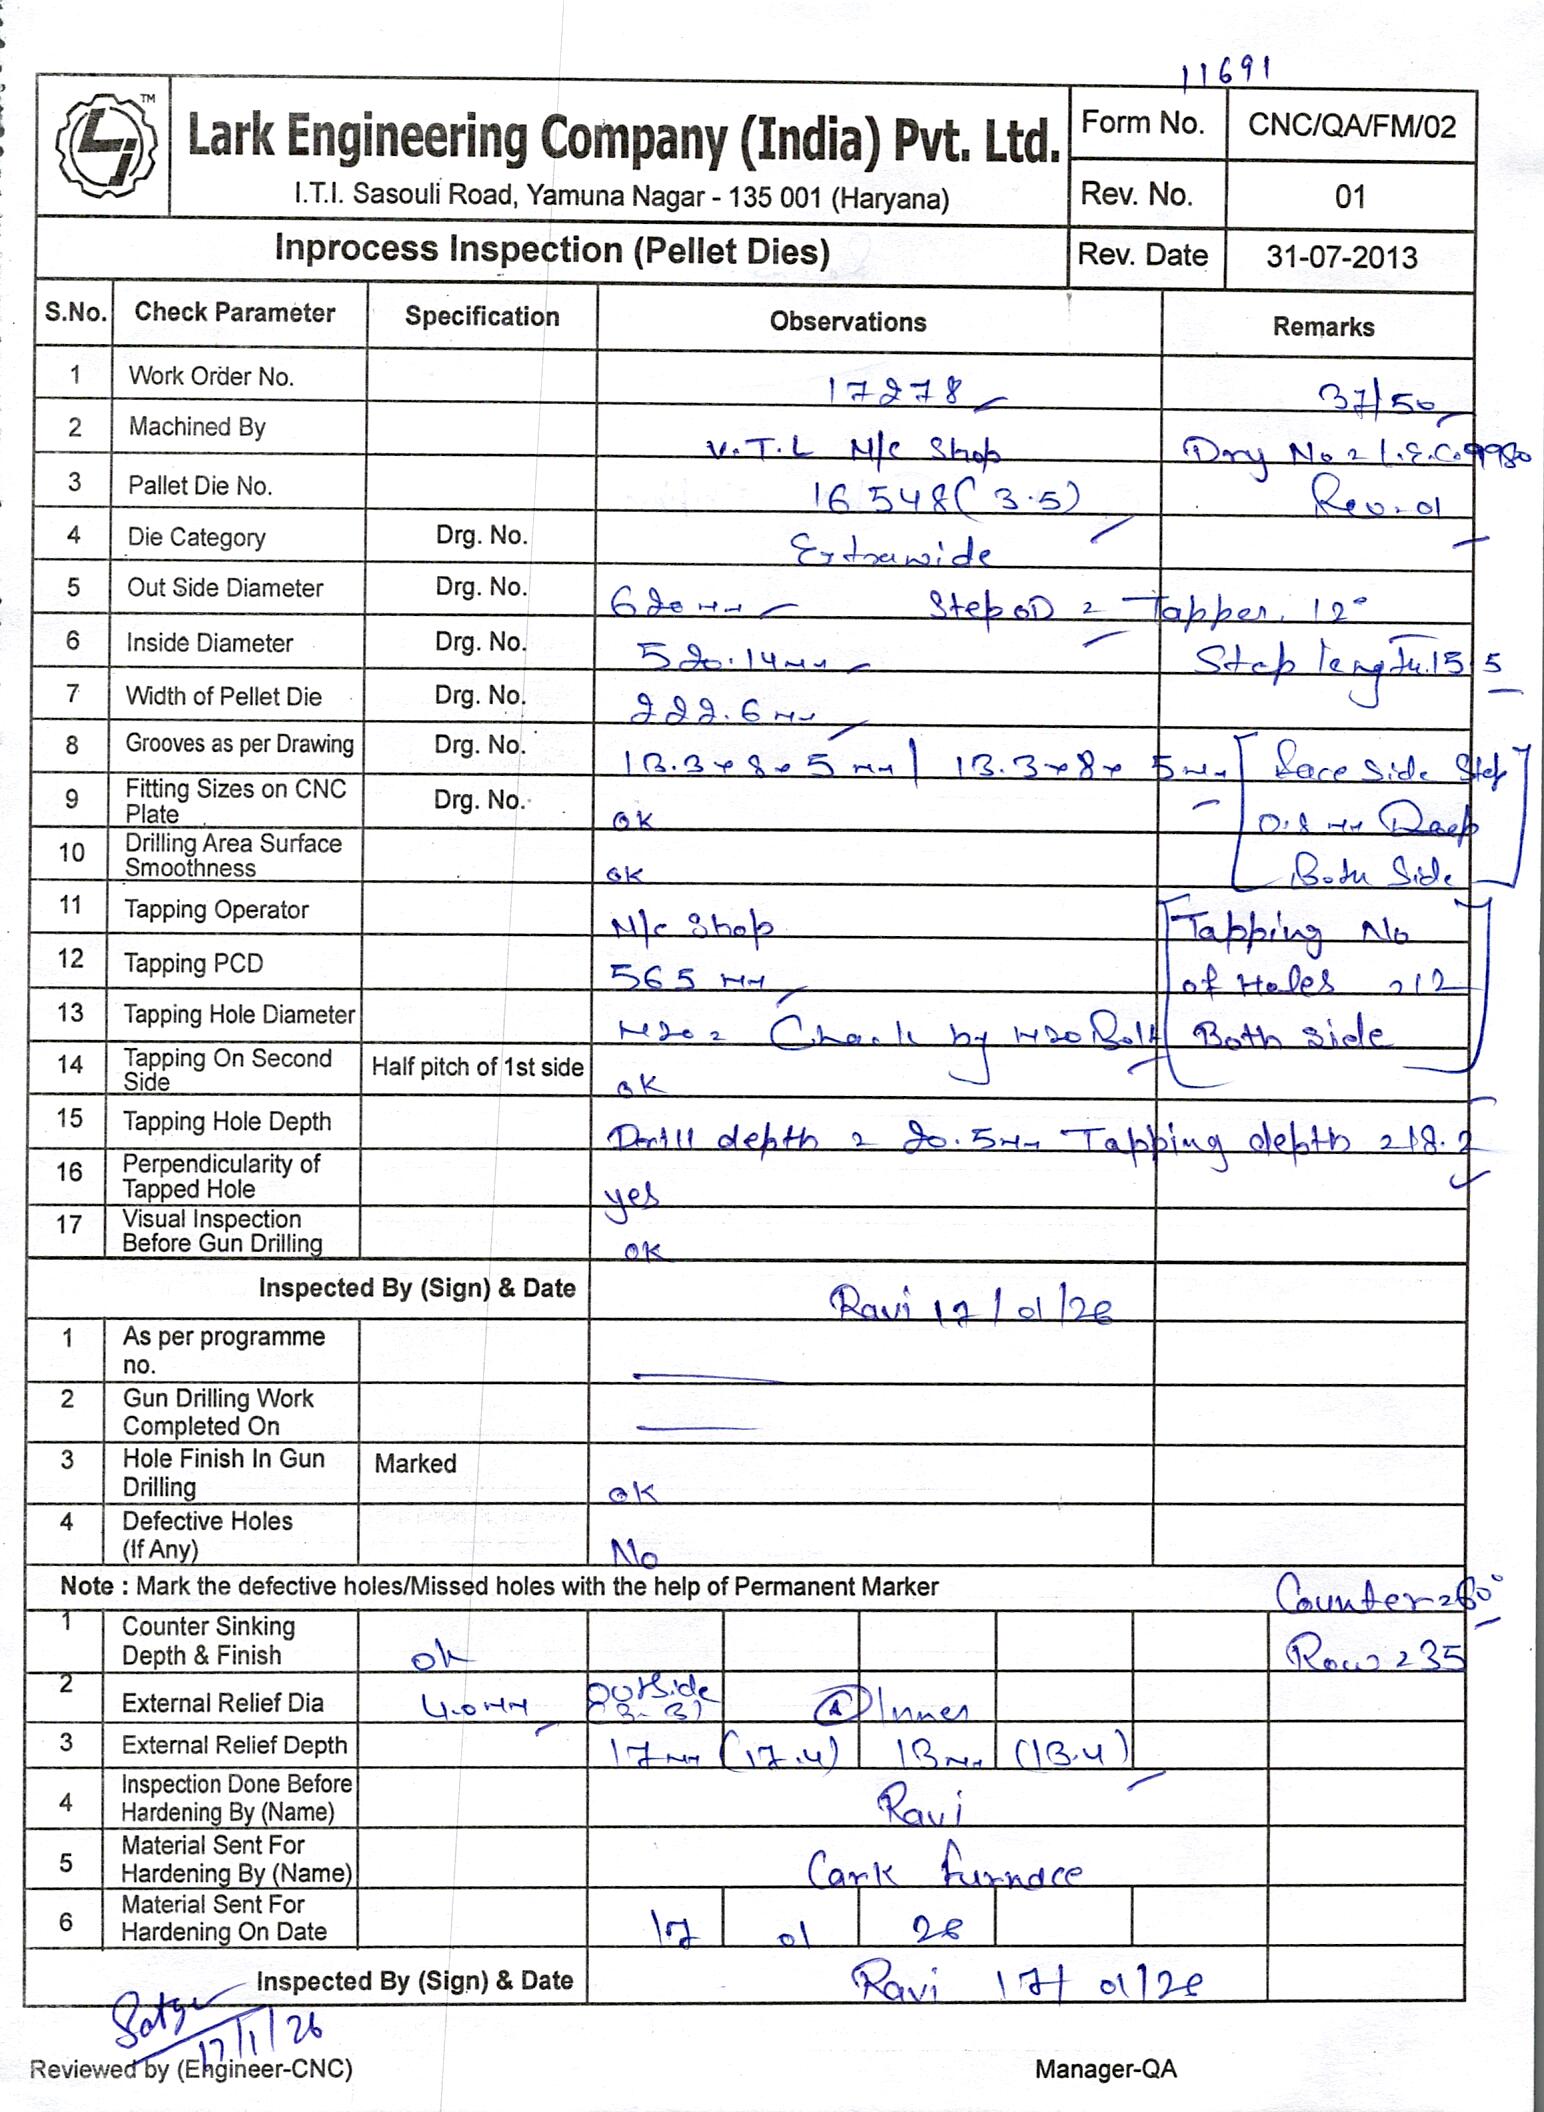 11691
TM
Lark Engineering Company (India) Pvt. Ltd.
I.T.I. Sasouli Road, Yamuna Nagar - 135 001 (Haryana)
Form No. CNC/QA/FM/02
Rev. No. 01
Inprocess Inspection (Pellet Dies) Rev. Date 31-07-2013
S.No. Check Parameter Specification Observations Remarks
1 Work Order No. 17278 37/50
2 Machined By V.T.L M/c Shop Drg No = L.E.C. 9980
3 Pallet Die No. 16548 (3.5) Rev-01
4 Die Category Drg. No. Extrawide
5 Out Side Diameter Drg. No. 620 mm Step OD = Tapper. 12°
6 Inside Diameter Drg. No. 520.14 mm Step length.15.5
7 Width of Pellet Die Drg. No. 222.6 mm
8 Grooves as per Drawing Drg. No. 13.3 x 8 x 5 mm | 13.3 x 8 x 5 mm [ Face Side Step
9 Fitting Sizes on CNC Plate Drg. No. ok 0.8 mm Deep
10 Drilling Area Surface Smoothness ok Both Side ]
11 Tapping Operator M/c Shop [ Tapping No
12 Tapping PCD 565 mm of Holes = 12
13 Tapping Hole Diameter M20 = Check by M20 Bolt Both side ]
14 Tapping On Second Side Half pitch of 1st side ok
15 Tapping Hole Depth Drill depth = 20.5mm Tapping depth = 18.2
16 Perpendicularity of Tapped Hole yes
17 Visual Inspection Before Gun Drilling ok
Inspected By (Sign) & Date Ravi 17/01/26
1 As per programme no.
2 Gun Drilling Work Completed On
3 Hole Finish In Gun Drilling Marked ok
4 Defective Holes (If Any) No
Note : Mark the defective holes/Missed holes with the help of Permanent Marker Counter = 60°
1 Counter Sinking Depth & Finish ok Row = 35
2 External Relief Dia 4.0 mm outside Inner
3 External Relief Depth 17 mm (17.4) 13 mm (13.4)
4 Inspection Done Before Hardening By (Name) Ravi
5 Material Sent For Hardening By (Name) Lark furnace
6 Material Sent For Hardening On Date 17 01 26
Inspected By (Sign) & Date Ravi 17/01/26
17/1/26
Reviewed by (Engineer-CNC) Manager-QA